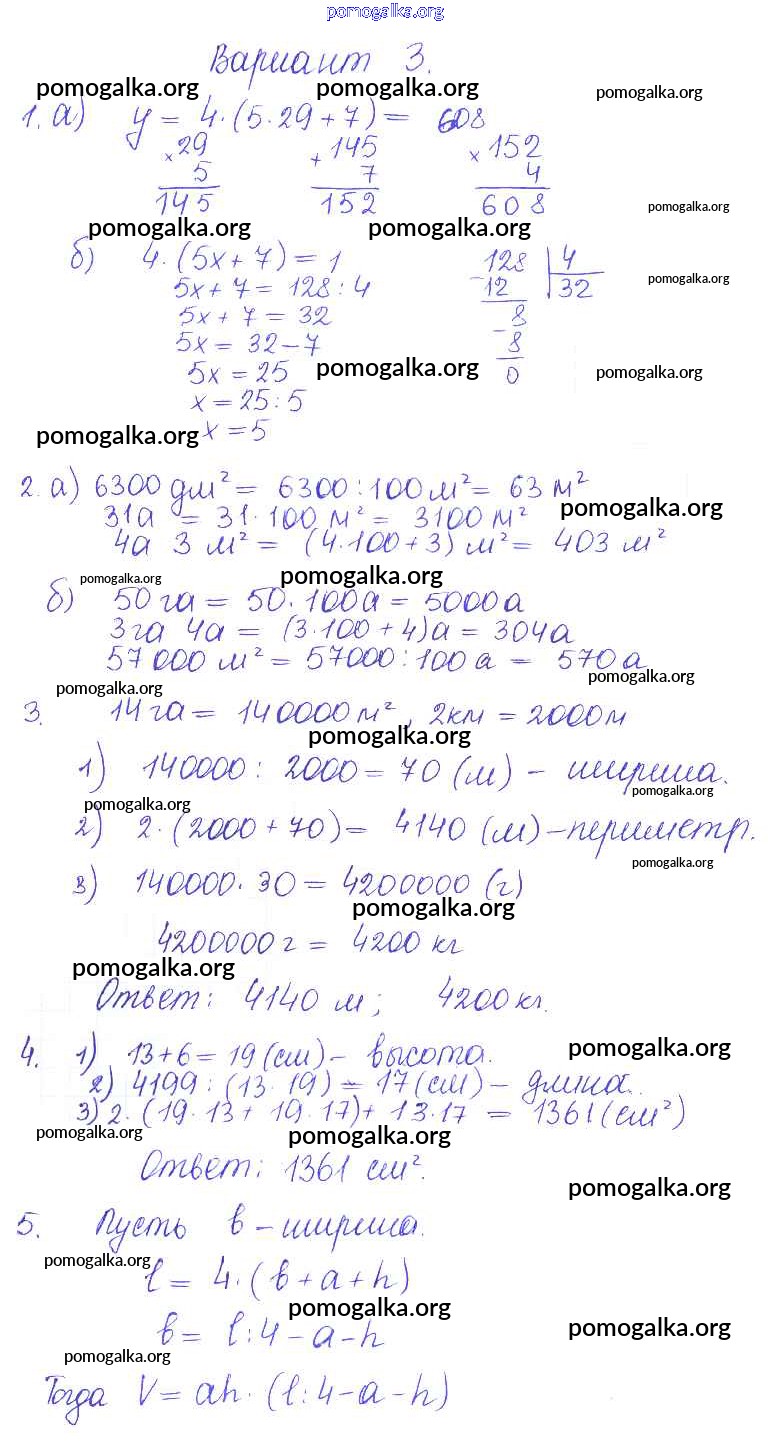 pomogalka.org
Вариант 3.
pomogalka.org pomogalka.org pomogalka.org
1. а) y = 4·(5·29+7) = 608
×29 +145 ×152
5 7 4
145 152 608
pomogalka.org
pomogalka.org pomogalka.org
б) 4·(5x+7) = 1 128 | 4
pomogalka.org
5x+7 = 128:4 -12 32
5x+7 = 32 8
5x = 32-7 -8
5x = 25 0
pomogalka.org pomogalka.org
x = 25:5
pomogalka.org x = 5
2. а) 6300 дм² = 6300:100 м² = 63 м²
31а = 31·100 м² = 3100 м²
pomogalka.org
4а 3 м² = (4·100+3) м² = 403 м²
pomogalka.org pomogalka.org
б) 50 га = 50·100а = 5000а
3га 4а = (3·100+4)а = 304а
57 000 м² = 57000:100 а = 570 а
pomogalka.org pomogalka.org
3. 14 га = 140000 м², 2км = 2000м
pomogalka.org
1) 140000 : 2000 = 70 (м) – ширина.
pomogalka.org pomogalka.org
2) 2·(2000+70) = 4140 (м) – периметр.
pomogalka.org
3) 140000·30 = 4200000 (г)
pomogalka.org
4200000 г = 4200 кг
pomogalka.org
Ответ: 4140 м; 4200 кг.
4. 1) 13+6 = 19 (см) – высота.
pomogalka.org
2) 4199 : (13·19) = 17 (см) – длина.
3) 2·(19·13+19·17)+13·17 = 1361 (см²)
pomogalka.org pomogalka.org
Ответ: 1361 см².
pomogalka.org
5. Пусть b – ширина.
pomogalka.org
l = 4·(b+a+h)
pomogalka.org pomogalka.org
b = l:4-a-h
pomogalka.org
Тогда V = ah·(l:4-a-h)